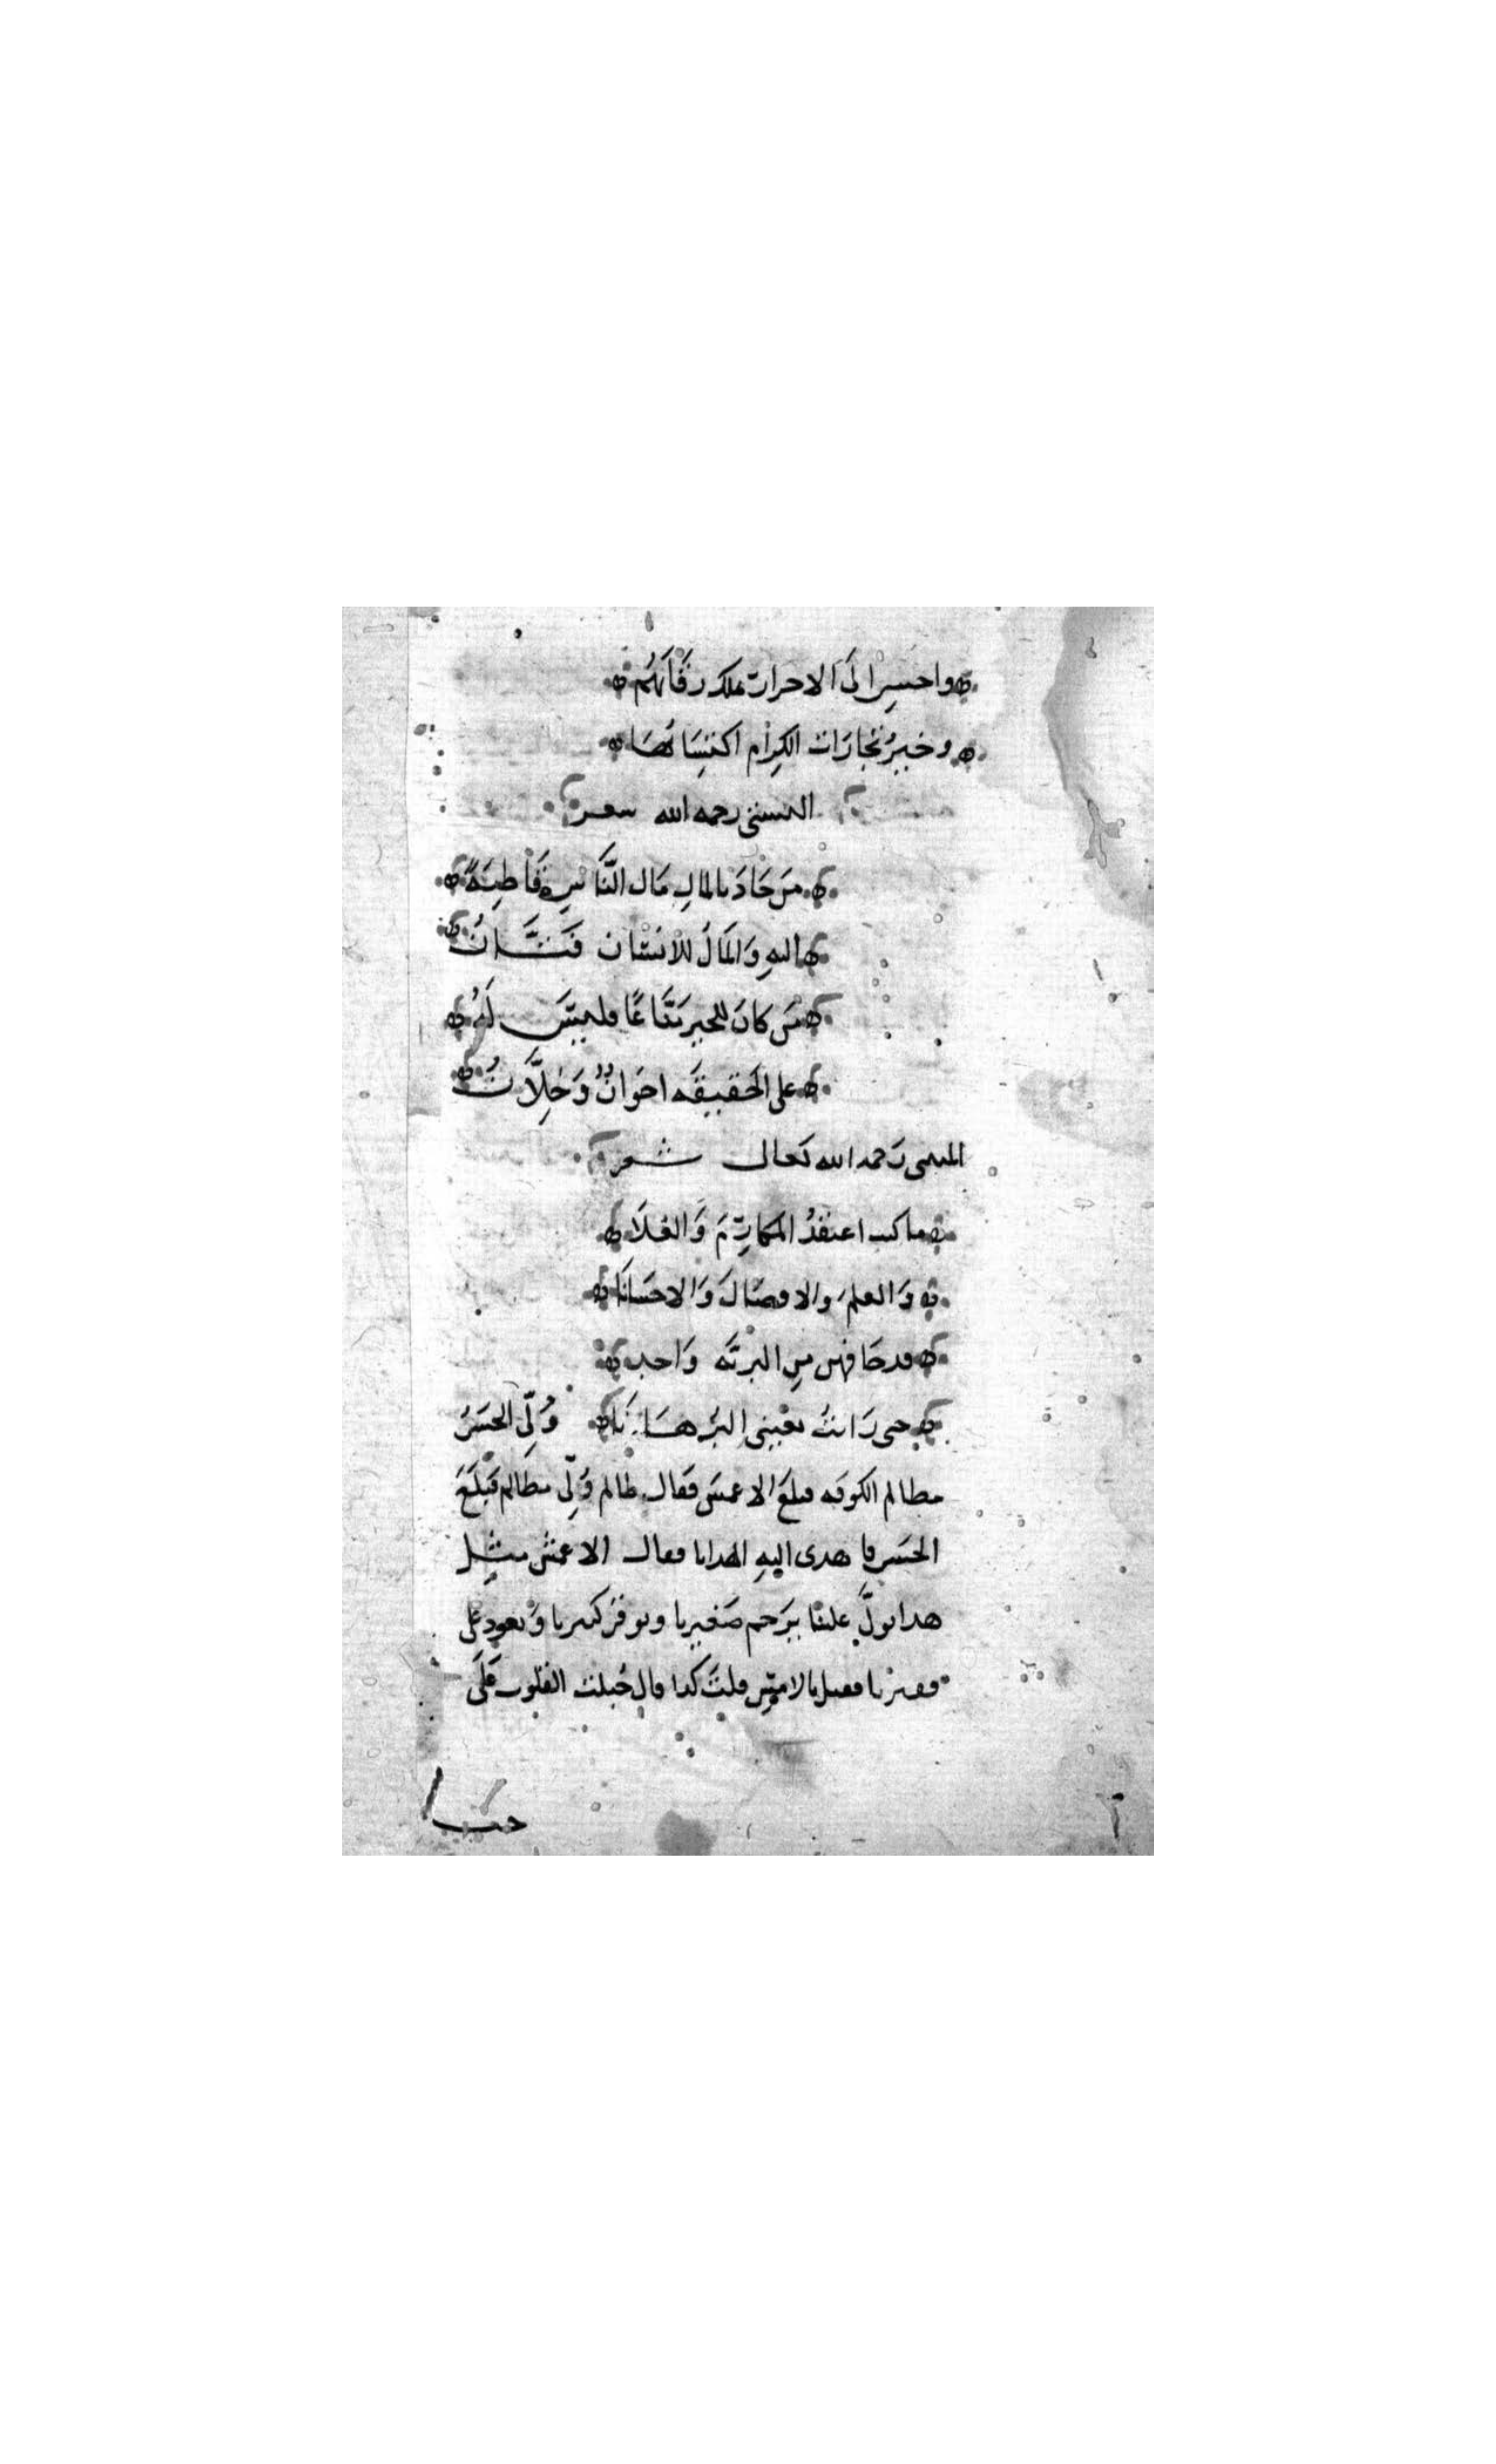 واحسِن الَى الاحرار تملك رقابَهُم
وخيرُ تجارَات الكِرام اكتِسَابُهَا
البستي رحمه الله شعر
مَن جَادَ بالمالِ مَال النَّاسُ قَاطِبَةً
اليهِ وَالمَالُ للاِنسَان فَتَّانُ
مَن كانَ للخيرِ مَنَّاعًا فليسَ لَهُ
على الحَقيقَه اخوَانٌ وَخِلَّانُ
المتنبي رَحمه الله تَعالى شعر
ما كنت اعتقدُ المكارِمَ وَالعُلَا
وَالعلمَ والافضالَ وَالاحسَانَا
قد حَازهن مِن البريَّه وَاحد
حتى رَايتُ بعيني البُرهَانَا وُلّي الحسَنُ
مظالم الكوفه فبلغَ الاعمش فقال ظالم وُلِّي مظالم فبلغَ
الحسَن فاهدى اليهِ الهدايا فقال الاعمش مثل
هذا يولَّى علينا يرحَم صَغيرنا ويوقر كبيرنا وَيعود على
فقيرنا فقيل بالامسِ قلتَ كذا قال جُبلت القلوب عَلَى
حب